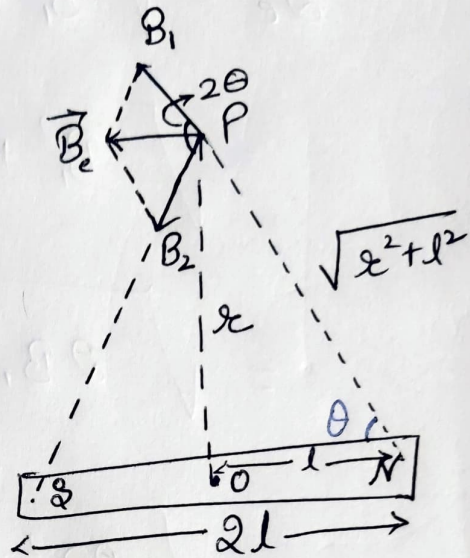 B₁
2θ
P
B⃗ₑ
B₂
√r²+l²
r
θ
S
O
l
N
2l